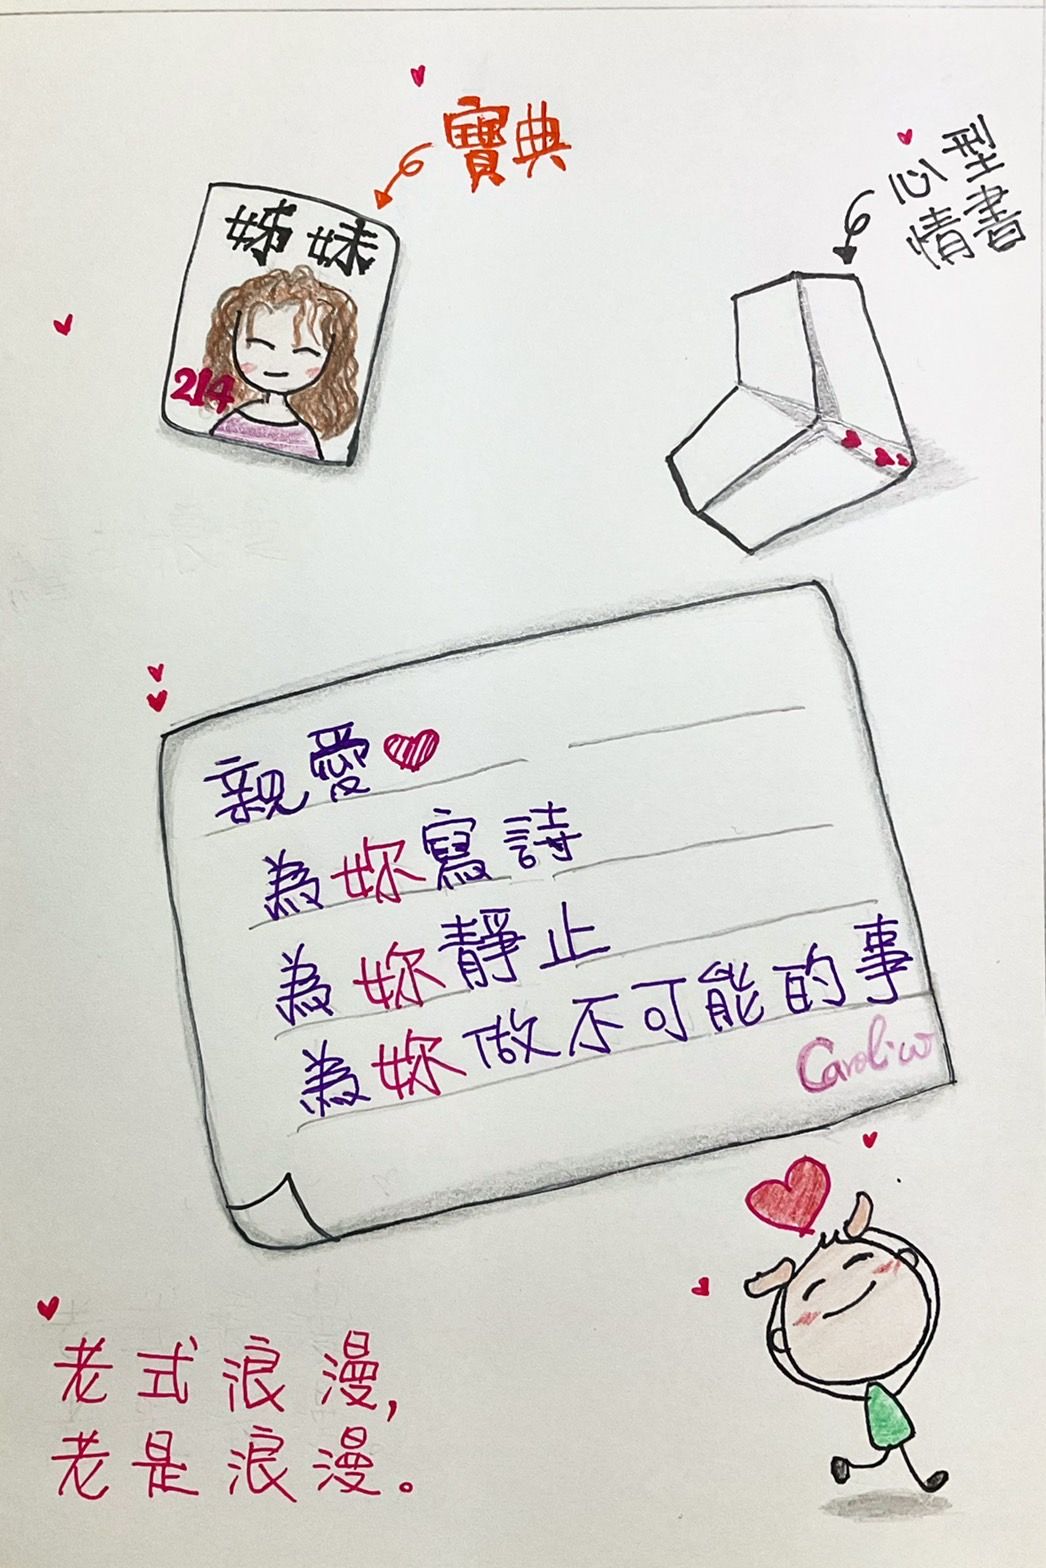 寶典
姊妹
214
心型
情書
親愛
為妳寫詩
為妳靜止
為妳做不可能的事
老式浪漫,
老是浪漫。